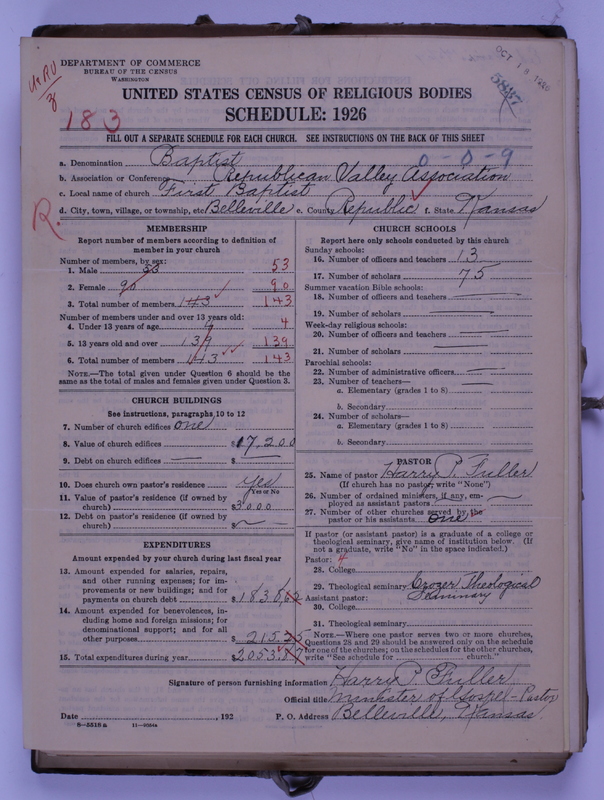 DEPARTMENT OF COMMERCE
BUREAU OF THE CENSUS
WASHINGTON
OCT 18 1926
183
UNITED STATES CENSUS OF RELIGIOUS BODIES
SCHEDULE: 1926
FILL OUT A SEPARATE SCHEDULE FOR EACH CHURCH. SEE INSTRUCTIONS ON THE BACK OF THIS SHEET
a. Denomination Baptist 0-0-9
b. Association or Conference Republican Valley Association
c. Local name of church First Baptist
d. City, town, village, or township, etc. Belleville e. County Republic f. State Kansas
R.
MEMBERSHIP
Report number of members according to definition of member in your church
Number of members, by sex:
1. Male 53 53
2. Female 90 90
3. Total number of members 143 143
Number of members under and over 13 years old:
4. Under 13 years of age 4 4
5. 13 years old and over 139 139
6. Total number of members 143 143
NOTE.—The total given under Question 6 should be the same as the total of males and females given under Question 3.
CHURCH BUILDINGS
See instructions, paragraphs 10 to 12
7. Number of church edifices one
8. Value of church edifices $17,200
9. Debt on church edifices $
10. Does church own pastor's residence yes
Yes or No
11. Value of pastor's residence (if owned by church) $3000
12. Debt on pastor's residence (if owned by church) $
EXPENDITURES
Amount expended by your church during last fiscal year
13. Amount expended for salaries, repairs, and other running expenses; for improvements or new buildings; and for payments on church debt $1838.02
14. Amount expended for benevolences, including home and foreign missions; for denominational support; and for all other purposes $215.25
15. Total expenditures during year $2053.27
CHURCH SCHOOLS
Report here only schools conducted by this church
Sunday schools:
16. Number of officers and teachers 13
17. Number of scholars 75
Summer vacation Bible schools:
18. Number of officers and teachers
19. Number of scholars
Week-day religious schools:
20. Number of officers and teachers
21. Number of scholars
Parochial schools:
22. Number of administrative officers
23. Number of teachers—
a. Elementary (grades 1 to 8)
b. Secondary
24. Number of scholars—
a. Elementary (grades 1 to 8)
b. Secondary
PASTOR
25. Name of pastor Harry P. Fuller
(If church has no pastor, write "None")
26. Number of ordained ministers, if any, employed as assistant pastors
27. Number of other churches served by the pastor or his assistants one
If pastor (or assistant pastor) is a graduate of a college or theological seminary, give name of institution below. (If not a graduate, write "No" in the space indicated.)
Pastor: 4
28. College
29. Theological seminary Crozer Theological Seminary
Assistant pastor:
30. College
31. Theological seminary
NOTE.—Where one pastor serves two or more churches, Questions 28 and 29 should be answered only on the schedule for one of the churches; on the schedules for the other churches, write "See schedule for church."
Signature of person furnishing information Harry P. Fuller
Official title Minister of Gospel - Pastor
Date , 192 P. O. Address Belleville, Kansas
8—5518 a 11—9064a